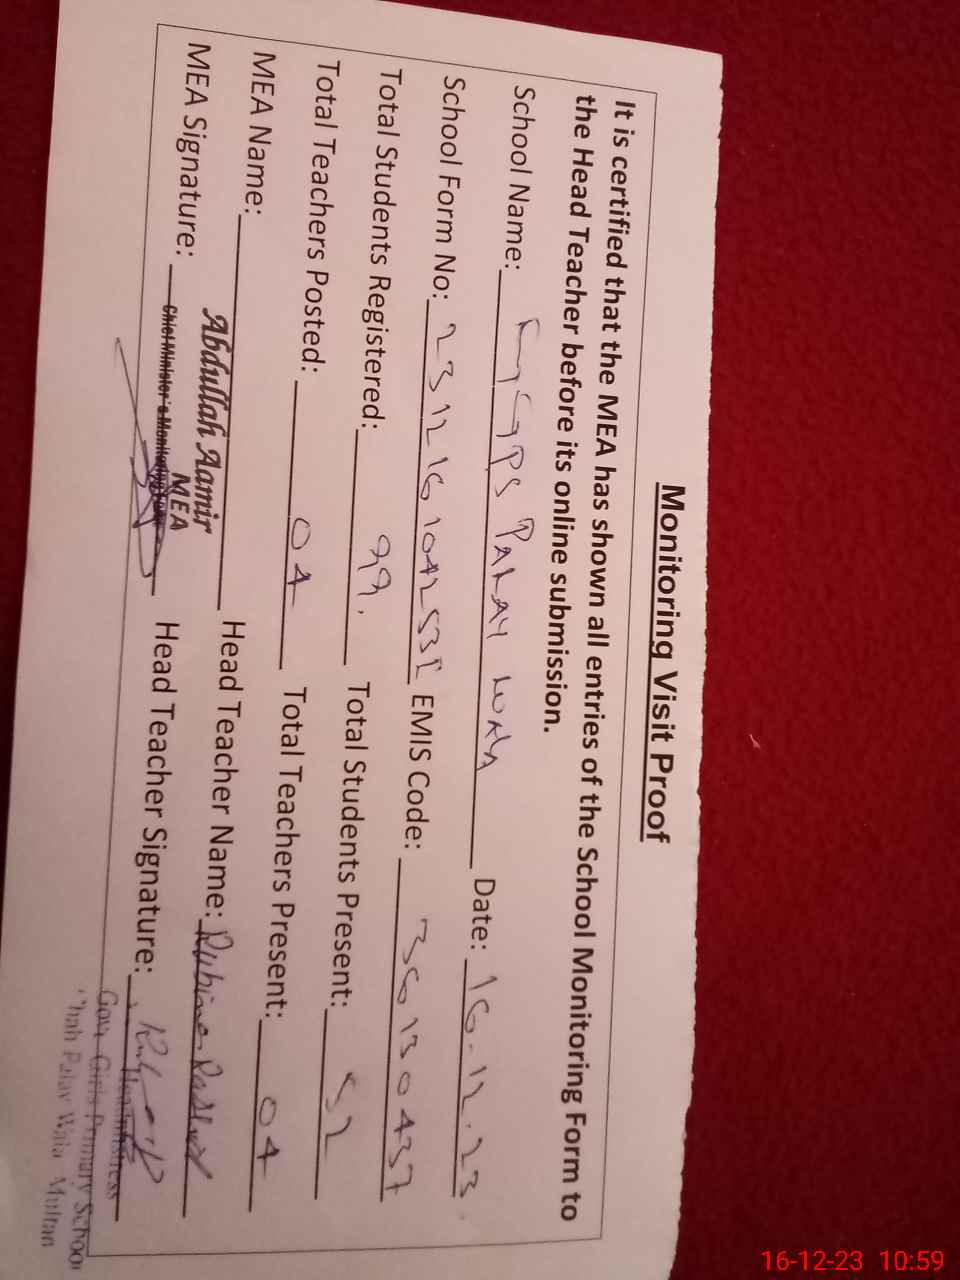 Monitoring Visit Proof
It is certified that the MEA has shown all entries of the School Monitoring Form to
the Head Teacher before its online submission.
School Name: GGPS PALAY WALA Date: 16-12-23.
School Form No: EMIS Code: 36130437
Total Students Registered: 99. Total Students Present: 52
Total Teachers Posted: 04 Total Teachers Present: 04
MEA Name: Abdullah Aamir Head Teacher Name: Rubina
MEA
MEA Signature: Chief Minister's Monitoring Head Teacher Signature:
Headmistress
Govt Girls Primary School
Chah Palay Wala Multan
16-12-23 10:59